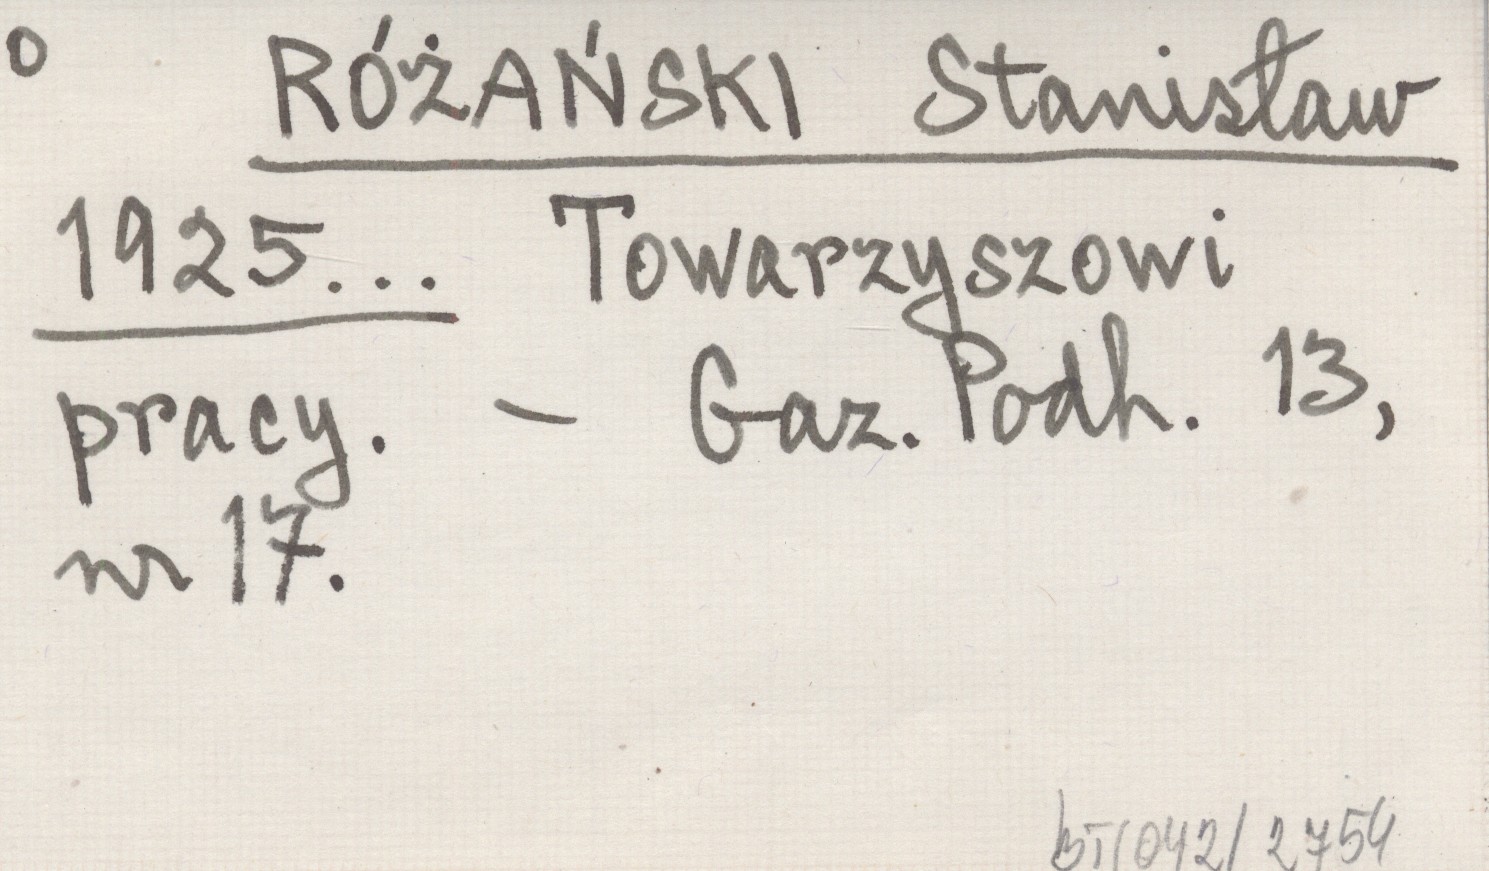 o RÓŻAŃSKI Stanisław
1925... Towarzyszowi
pracy. - Gaz. Podh. 13,
nr 17.
BT/042/2754